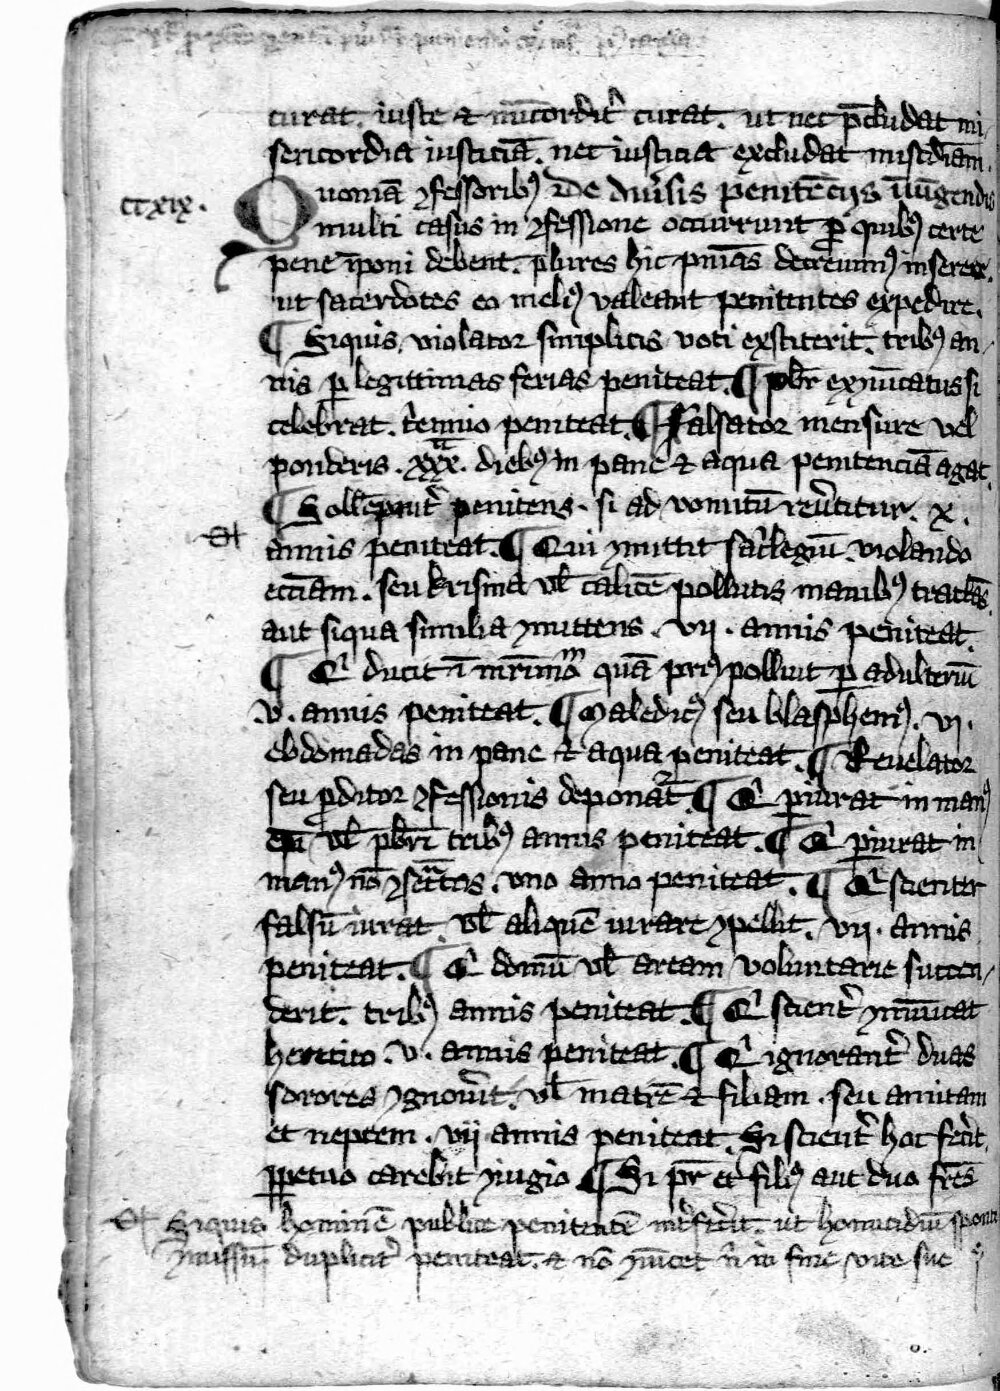 curat. iuste ⁊ mi͞cordit͛ curat. ut nec p̄cludat mi
sericordia iusticiā. nec iusticia excludat misc͞diam.
cc xix. Quoniā ꝯfessoribꝰ De diu͛sis penitēciis iniūgendis
multi casus in ꝯfessione occurrunt ꝓ quibꝰ certe
pene īponi debent. plures hic pn͞ias decreuimꝰ inserere.
ut sacerdotes eo meliꝰ valeant penitentes expedire.
¶ Siquis violator simplicis voti exstiterit. tribꝰ an
nis ꝑ legittimas ferias peniteat. ¶ pb͞r exꝯmu͞icatus si
celebrat. t͛ennio peniteat. ¶ Falsator mensure vel
ponderis. xxx. diebꝰ in pane ⁊ aqua penitenciā agat.
¶ Soll͞epnit͛ penitens. si ad vomitū reu͛titur. x.
annis peniteat. ¶ Qui ꝯmittit sac͛legiū violando
ecc͞iam. seu krisma ul̄ calicē pollutis manibꝰ tractās.
aut siqua similia ꝯmittens. vii. annis peniteat.
¶ Qⁱ ducit ī mr͞imōᵐ quā priꝰ polluit ꝑ adulteriū
v. annis peniteat. ¶ Maledicꝰ seu blasphemꝰ. vi.
ebdomadas in pane ⁊ aqua peniteat. ¶ Reuelator
seu ꝓditor ꝯfessionis deponat͛. ¶ Qⁱ ꝑiurat in manꝰ
ep̄i ul̄ pb͞ri tribꝰ annis peniteat. ¶ Qⁱ ꝑiurat in
manꝰ nō ꝯsec͛tas. uno anno peniteat. ¶ Qⁱ scienter
falsū iurat. ul̄ aliquē iurare ꝯpellit. vii. annis
peniteat. ¶ Qⁱ domū ul̄ aream voluntarie succen
derit. tribꝰ annis peniteat. ¶ Qⁱ scient͛ ꝯmu͞icat
heretico. v. annis peniteat. ¶ Qⁱ ignorant͛ duas
sorores ꝯgnou͛it. ul̄ matrē ⁊ filiam. seu amitam
et neptem. vii annis peniteat. Si scient͛ hoc fec͛it.
ꝑpetuo carebit ꝯiugio ¶ Si pr̄ et filiꝰ aut duo fr̄es
Siquis hominē publice penitentē int͛fec͛it. ut homicidiū sponte
ꝯmissū. duplicit͛ peniteat. ⁊ nō ꝯmu͞icet n̄ in fine vite sue